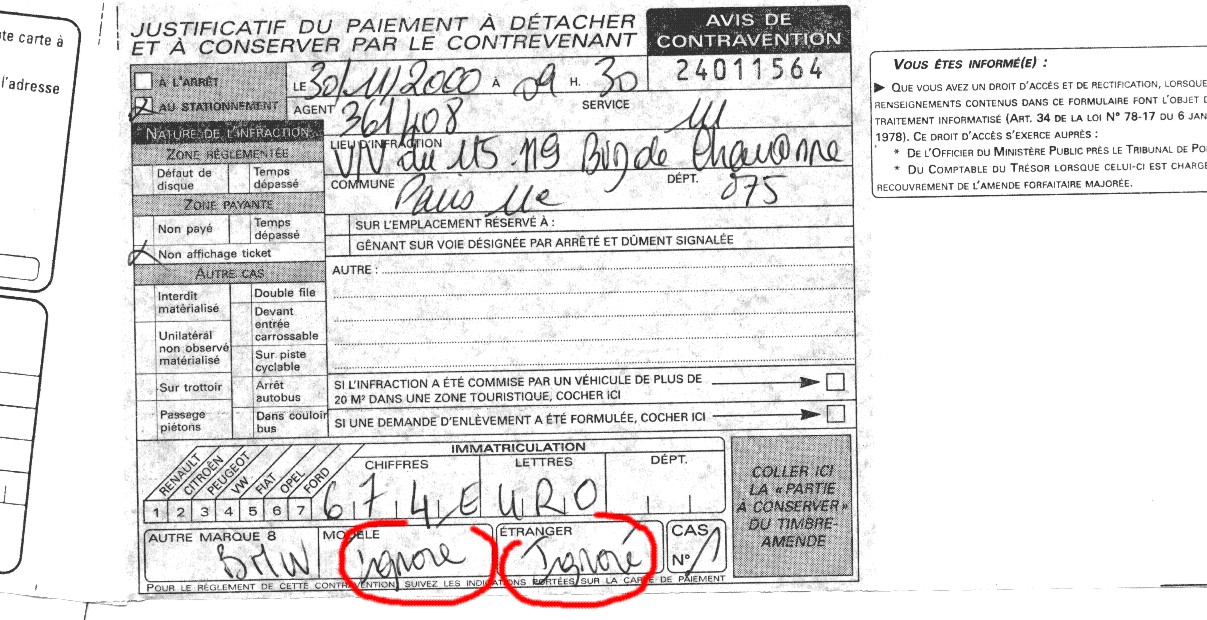 te carte à
l'adresse
JUSTIFICATIF DU PAIEMENT À DÉTACHER
ET À CONSERVER PAR LE CONTREVENANT
AVIS DE
CONTRAVENTION
24011564
À L'ARRÊT
AU STATIONNEMENT
LE 30/11/2000 À 09 H. 30
AGENT 361408
SERVICE
NATURE DE L'INFRACTION
LIEU D'INFRACTION
V/V du 115.119 de
ZONE RÉGLEMENTÉE
Défaut de disque
Temps dépassé
COMMUNE Paris 11e
DÉPT. 075
ZONE PAYANTE
Non payé
Temps dépassé
Non affichage ticket
SUR L'EMPLACEMENT RÉSERVÉ À :
GÊNANT SUR VOIE DÉSIGNÉE PAR ARRÊTÉ ET DÛMENT SIGNALÉE
AUTRE CAS
AUTRE :
Interdit matérialisé
Double file
Unilatéral non observé matérialisé
Devant entrée carrossable
Sur piste cyclable
Sur trottoir
Arrêt autobus
Passage piétons
Dans couloir bus
SI L'INFRACTION A ÉTÉ COMMISE PAR UN VÉHICULE DE PLUS DE
20 M² DANS UNE ZONE TOURISTIQUE, COCHER ICI
SI UNE DEMANDE D'ENLÈVEMENT A ÉTÉ FORMULÉE, COCHER ICI
IMMATRICULATION
CHIFFRES
LETTRES
DÉPT.
RENAULT
CITROËN
PEUGEOT
VW
FIAT
OPEL
FORD
1 2 3 4 5 6 7
674 EURO
AUTRE MARQUE 8
BMW
MODÈLE
ignoré
ÉTRANGER
Ignoré
CAS
N° 1
COLLER ICI
LA « PARTIE
À CONSERVER »
DU TIMBRE-
AMENDE
POUR LE RÈGLEMENT DE CETTE CONTRAVENTION, SUIVEZ LES INDICATIONS PORTÉES SUR LA CARTE DE PAIEMENT
VOUS ÊTES INFORMÉ(E) :
QUE VOUS AVEZ UN DROIT D'ACCÈS ET DE RECTIFICATION, LORSQUE
RENSEIGNEMENTS CONTENUS DANS CE FORMULAIRE FONT L'OBJET D
TRAITEMENT INFORMATISÉ (ART. 34 DE LA LOI N° 78-17 DU 6 JAN
1978). CE DROIT D'ACCÈS S'EXERCE AUPRÈS :
* DE L'OFFICIER DU MINISTÈRE PUBLIC PRÈS LE TRIBUNAL DE PO
* DU COMPTABLE DU TRÉSOR LORSQUE CELUI-CI EST CHARGÉ
RECOUVREMENT DE L'AMENDE FORFAITAIRE MAJORÉE.